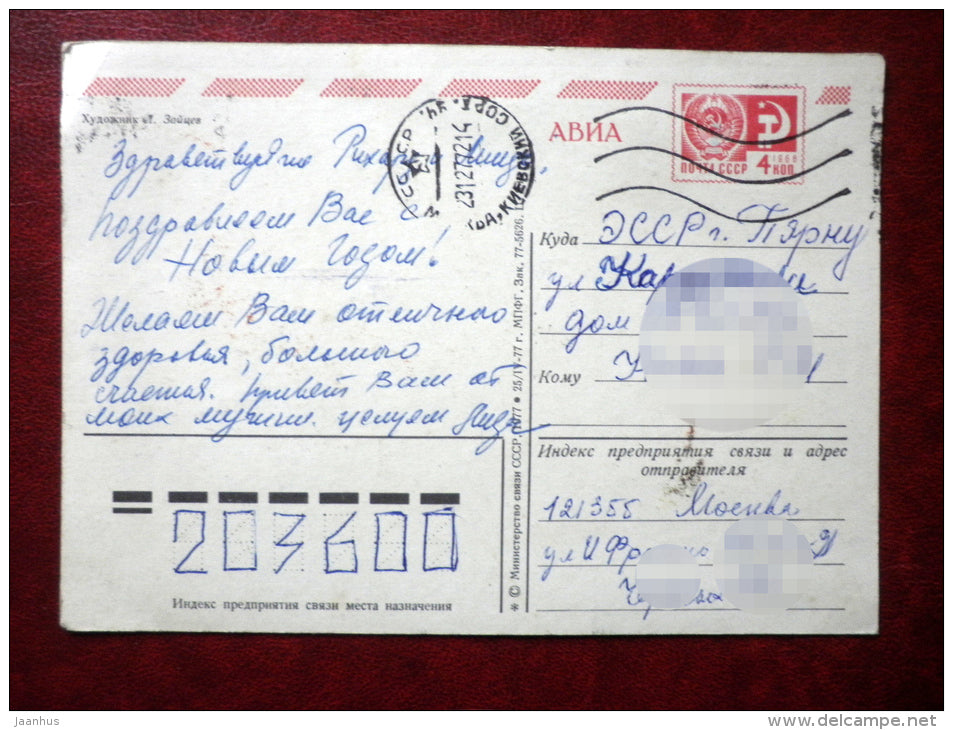 Художник Л. Зайцев
АВИА
ПОЧТА СССР 4 КОП
1966
КИЕВСКИЙ СОРТ.
231277 21 4
Здравствуйте
Поздравляем Вас с
Новым Годом!
Желаем Вам отличного
здоровья, большого
счастья. Привет Вам от
моих мужчин. целуем
Куда ЭССР г. Пярну
ул
дом
Кому
Индекс предприятия связи и адрес
отправителя
121355 Москва
ул И
203600
Индекс предприятия связи места назначения
* © Министерство связи СССР. 1977 • 25/IV-77 г. МПФГ. Зак. 77-5626.
jaanhus
www.delcampe.net